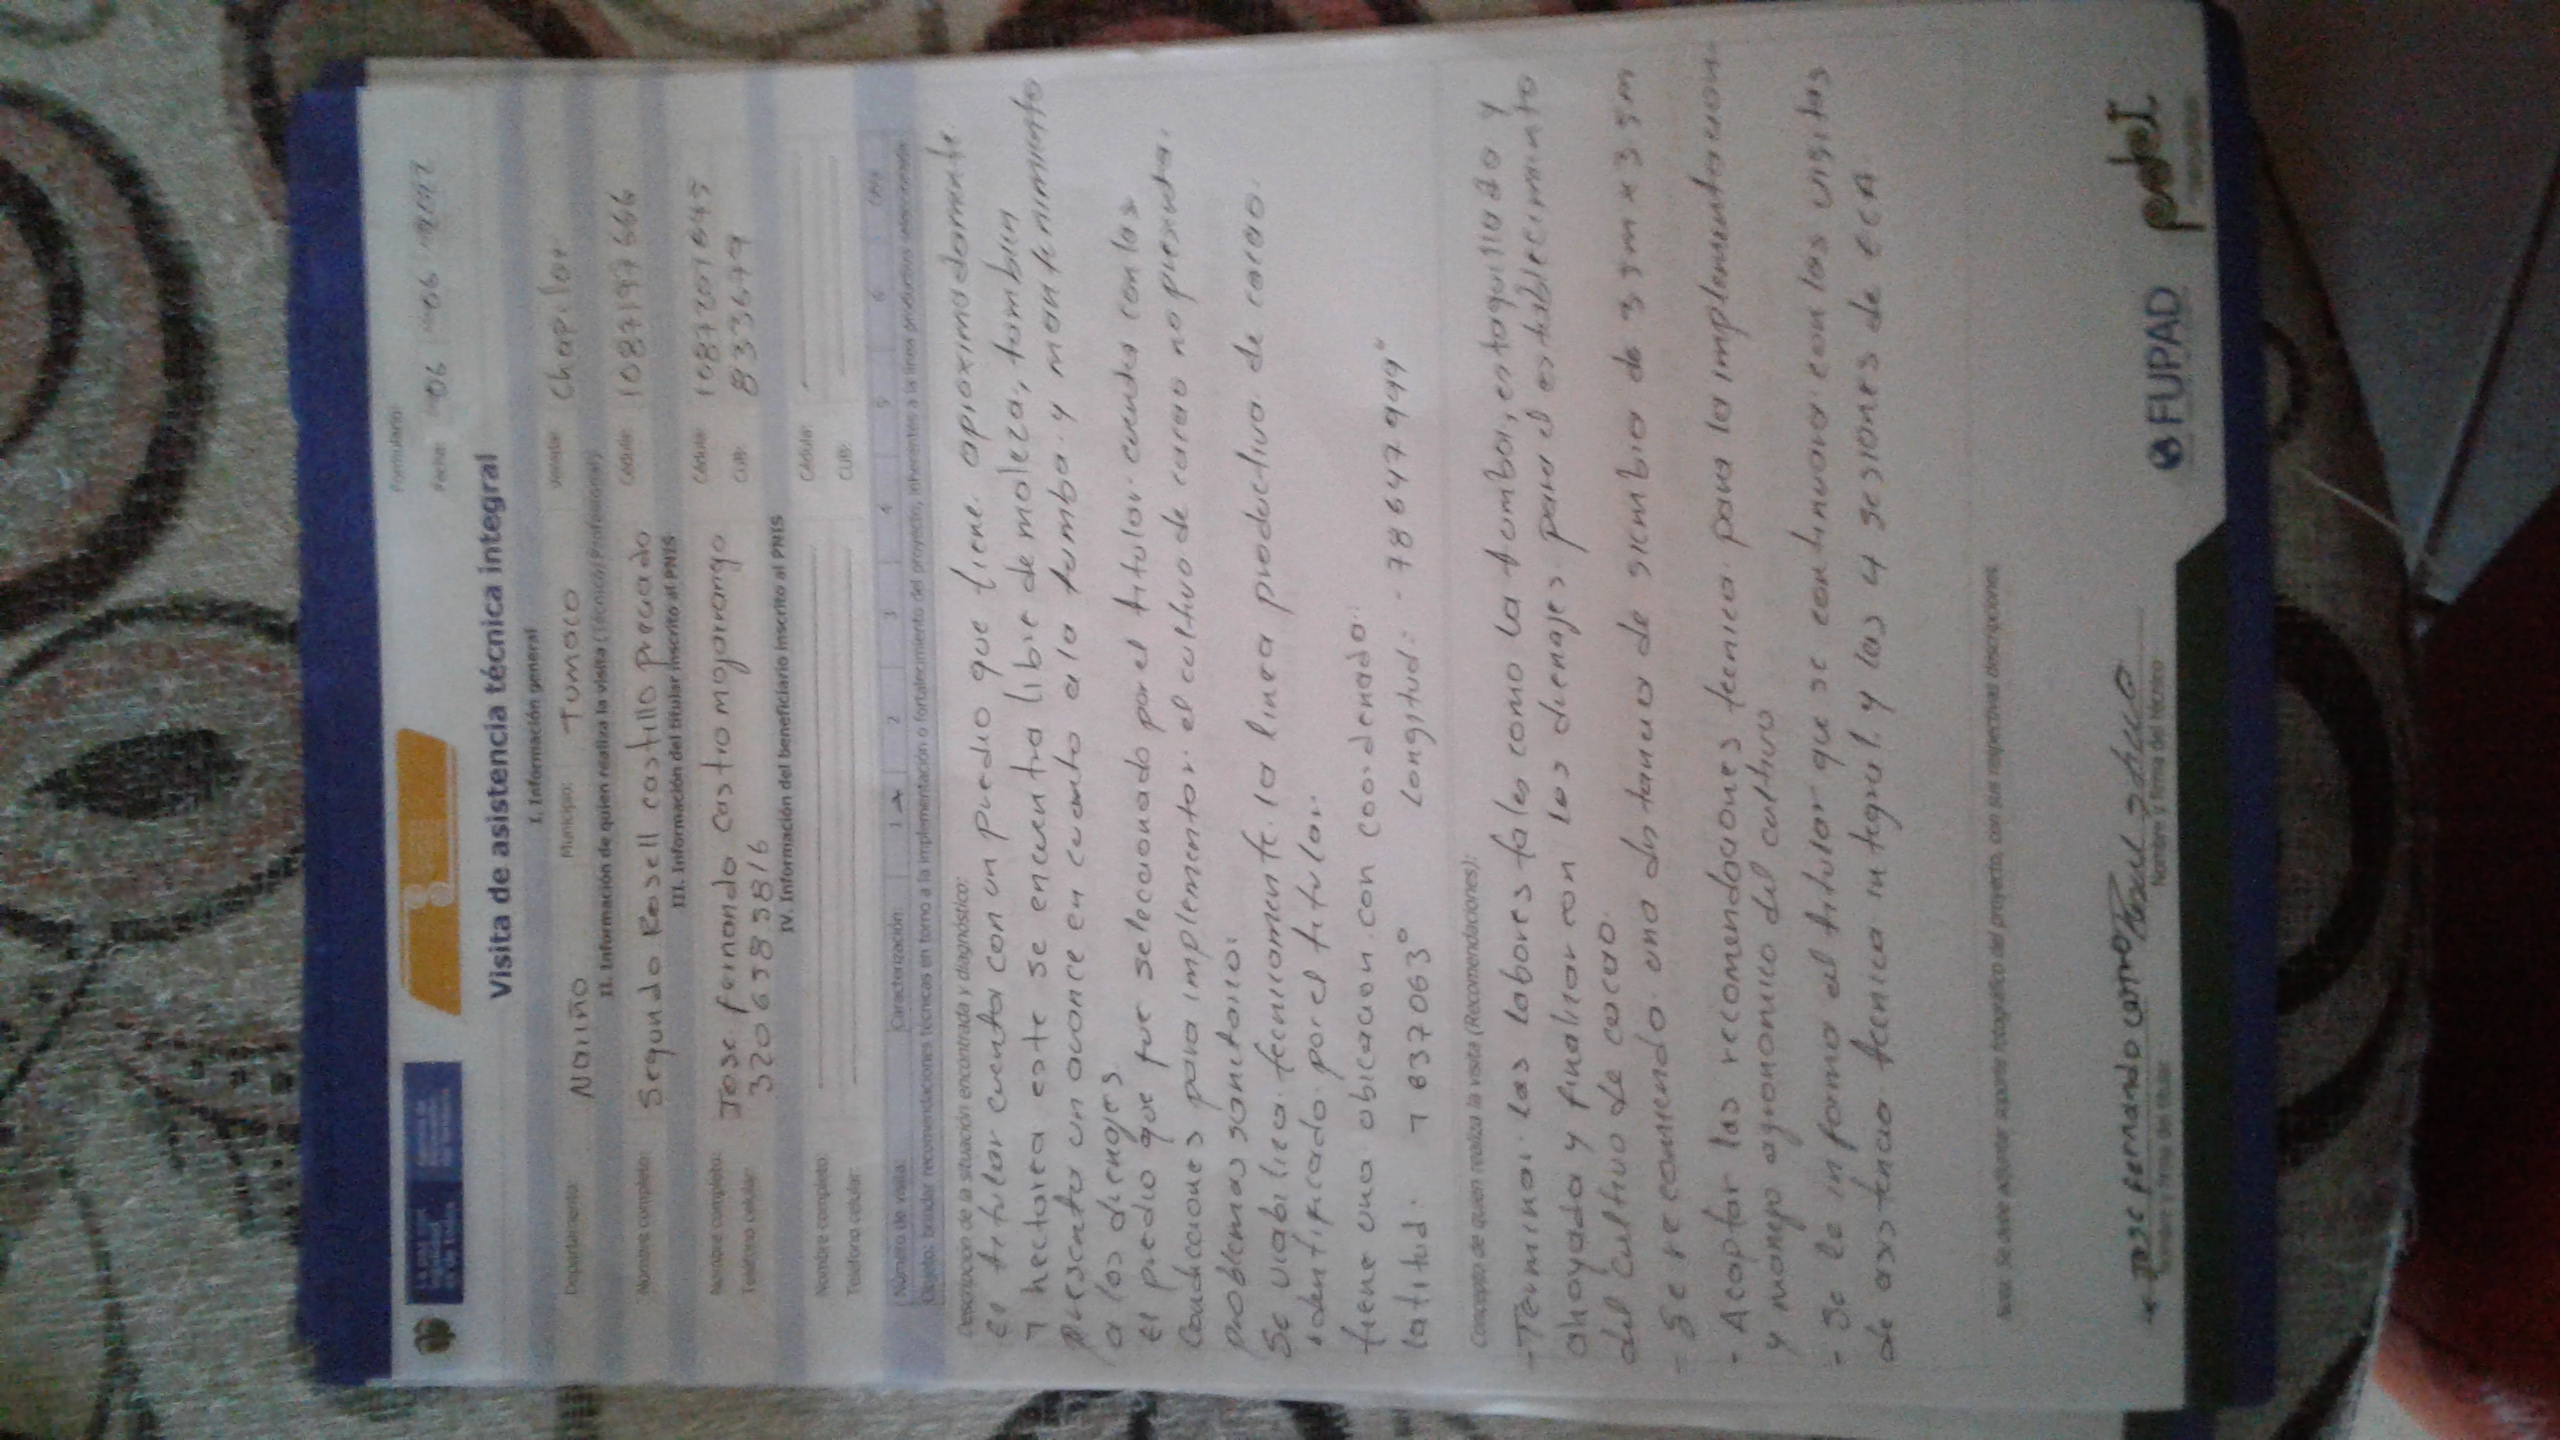 Formulario:
Fecha: 06 06
Visita de asistencia técnica integral
I. Información general
Departamento: Nariño Municipio: Tumaco Vereda: Chapilar
II. Información de quien realiza la visita (Técnico/Profesional)
Nombre completo: Segundo Rosell castillo preciado Cédula: 1087197666
III. Información del titular inscrito al PNIS
Nombre completo: Jose fernando Castro mojarango Cédula: 1087201645
Teléfono celular: 3206383816 CUB: 833679
IV. Información del beneficiario inscrito al PNIS
Nombre completo: Cédula:
Teléfono celular: CUB:
Número de visita: Caracterización: 1 2 3 4 5 6
Objeto: brindar recomendaciones técnicas en torno a la implementación o fortalecimiento del proyecto, inherentes a la línea productiva seleccionada.
Descripción de la situación encontrada y diagnóstico:
El titular cuenta con un predio que tiene aproximadamente
1 hectarea este se encuentra libre de maleza, tambien
presenta un avance en cuanto a la tumba y mantenimiento
a los drenajes.
El predio que fue seleccionado por el titular cuenta con las
Condiciones para implementar el cultivo de cacao no presenta
problemas sanitarios
Se viabiliza tecnicamente la linea productiva de cacao.
identificado por el titular.
tiene una obicacion con coordenada:
latitud: 1 837063° Longitud: - 78 6447999°
Concepto de quien realiza la visita (Recomendaciones):
- Terminar las labores tales como la tumba, estaquillado y
ahoyado y finalizar con los drenajes para el establecimiento
del cultivo de cacao.
- Se recomienda una distancia de siembra de 3 5m x 3 5m
- Acoptar las recomendaciones tecnica para la implementacion
y manejo agronomico del cultivo
- Se le informa al titular que se continuara con las visitas
de asistencia tecnica integral y las 4 sesiones de ECA.
Nota: Se debe adjuntar soporte fotográfico del proyecto, con sus respectivas descripciones
Jose fernando castro
Nombre y firma del titular
Nombre y firma del técnico
FUPAD
pdet